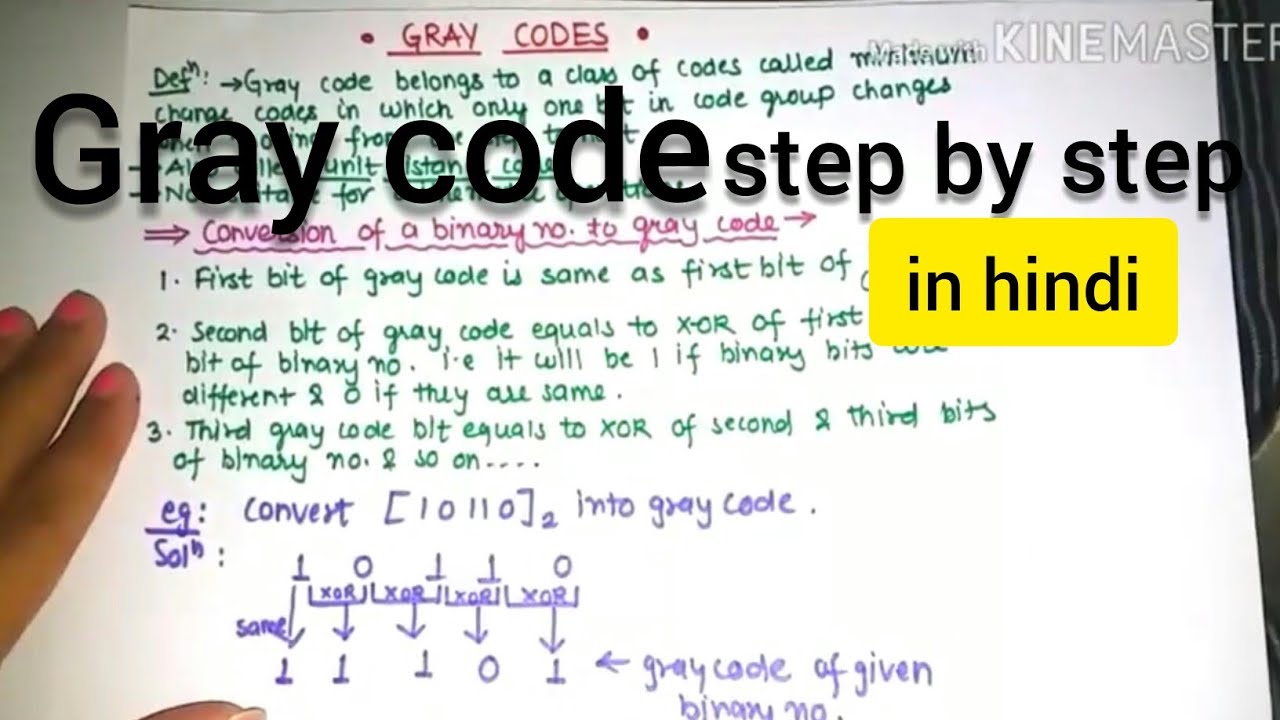 • GRAY CODES •
Made with KINEMASTER
Defⁿ: → Gray code belongs to a class of codes called minimum
change codes in which only one bit in code group changes
Gray code step by step
in hindi
⇒ Conversion of a binary no. to gray code →
1. First bit of gray code is same as first bit of
2. Second bit of gray code equals to X-OR of first
bit of binary no. i.e it will be 1 if binary bits are
different & 0 if they are same.
3. Third gray code bit equals to XOR of second & third bits
of binary no. & so on....
eg: Convert [10110]₂ into gray code.
Solⁿ:
1 0 1 1 0
XOR XOR XOR XOR
same
1 1 1 0 1 ← gray code of given
binary no.